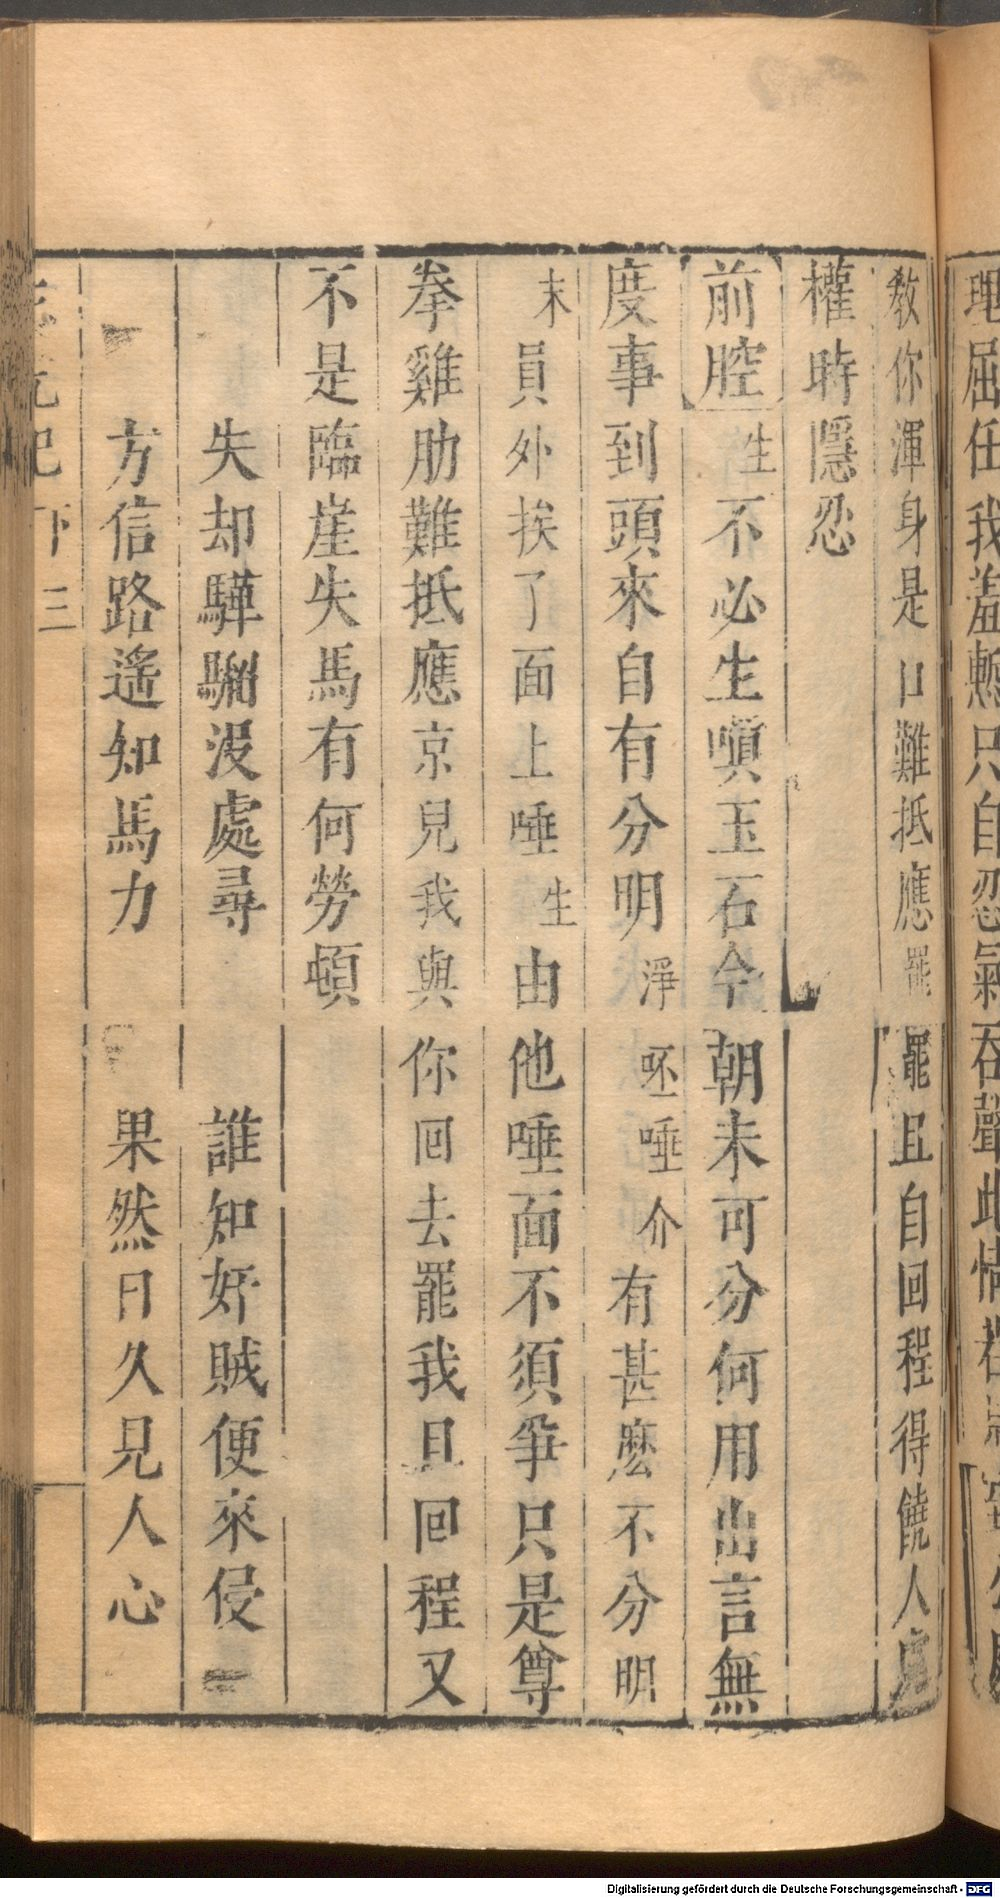 理屈任我羞慙只自忍氣吞聲此情
教你渾身是口難抵應罷罷且自回程得饒人處
權時隱忍
前腔生不必生嗔玉石今朝未可分何用出言無
度事到頭來自有分明淨呸唾介有甚麽不分明
末員外挨了面上唾生由他唾面不須爭只是尊
拳雞肋難抵應京兒我與你回去罷我且回程又
不是臨崖失馬有何勞頓
失却驊騮没處尋 誰知奸賊便來侵
方信路遙知馬力 果然日久見人心
記 下 三
Digitalisierung gefördert durch die Deutsche Forschungsgemeinschaft - DFG